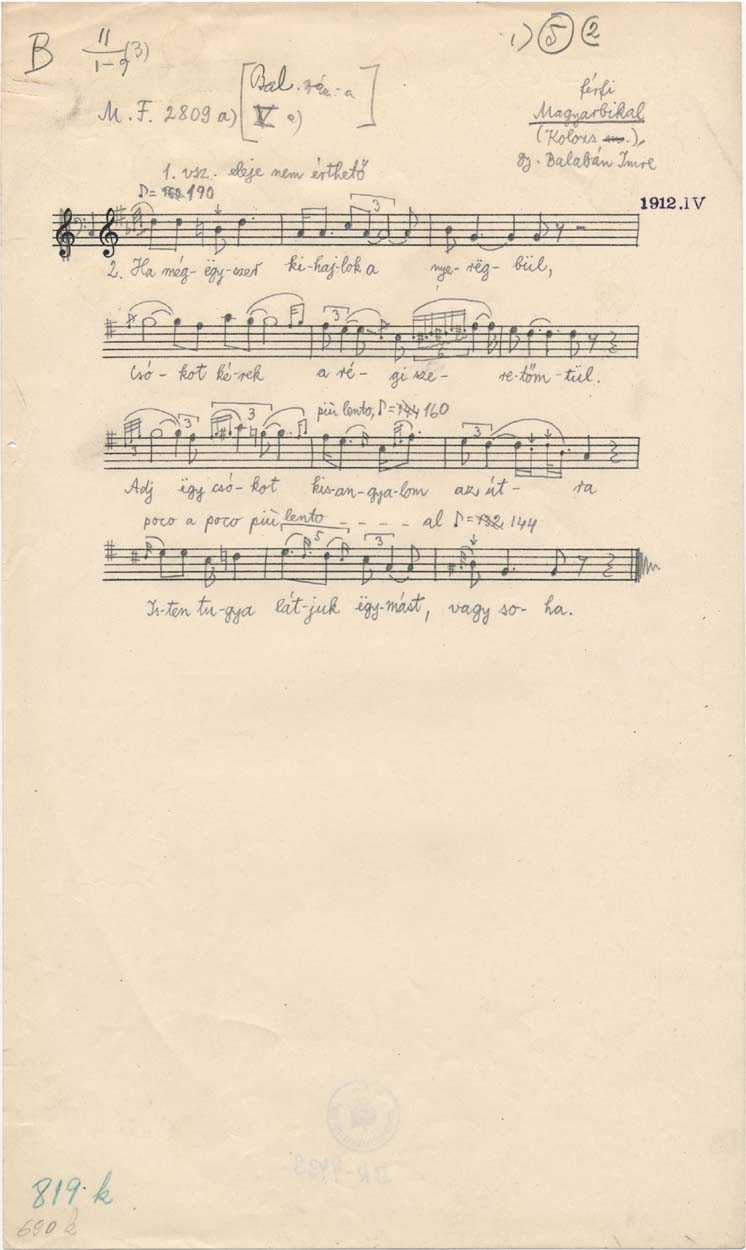 B 11 / 1-9 (3)
1) 5 2
M. F. 2809 a) [Bal. V e)]
férfi
Magyarbikal
(Kolozs),
gy. Balabán Imre
1912. IV
1. vsz. eleje nem érthető
♪= 190
2. Ha még-ëgy-szer ki-haj-lok a nye-rëg-bül,
3
Csó-kot ké-rek a ré-gi sze-re-tőm-tül.
3 6
più lento, ♪= 144 160
3 3 3
Adj ëgy csó-kot kis-an-gya-lom az út-ra
poco a poco più lento - - - - al ♪= 132 144
5 3
Is-ten tu-gya lát-juk ëgy-mást, vagy so-ha.
819. k
690 k